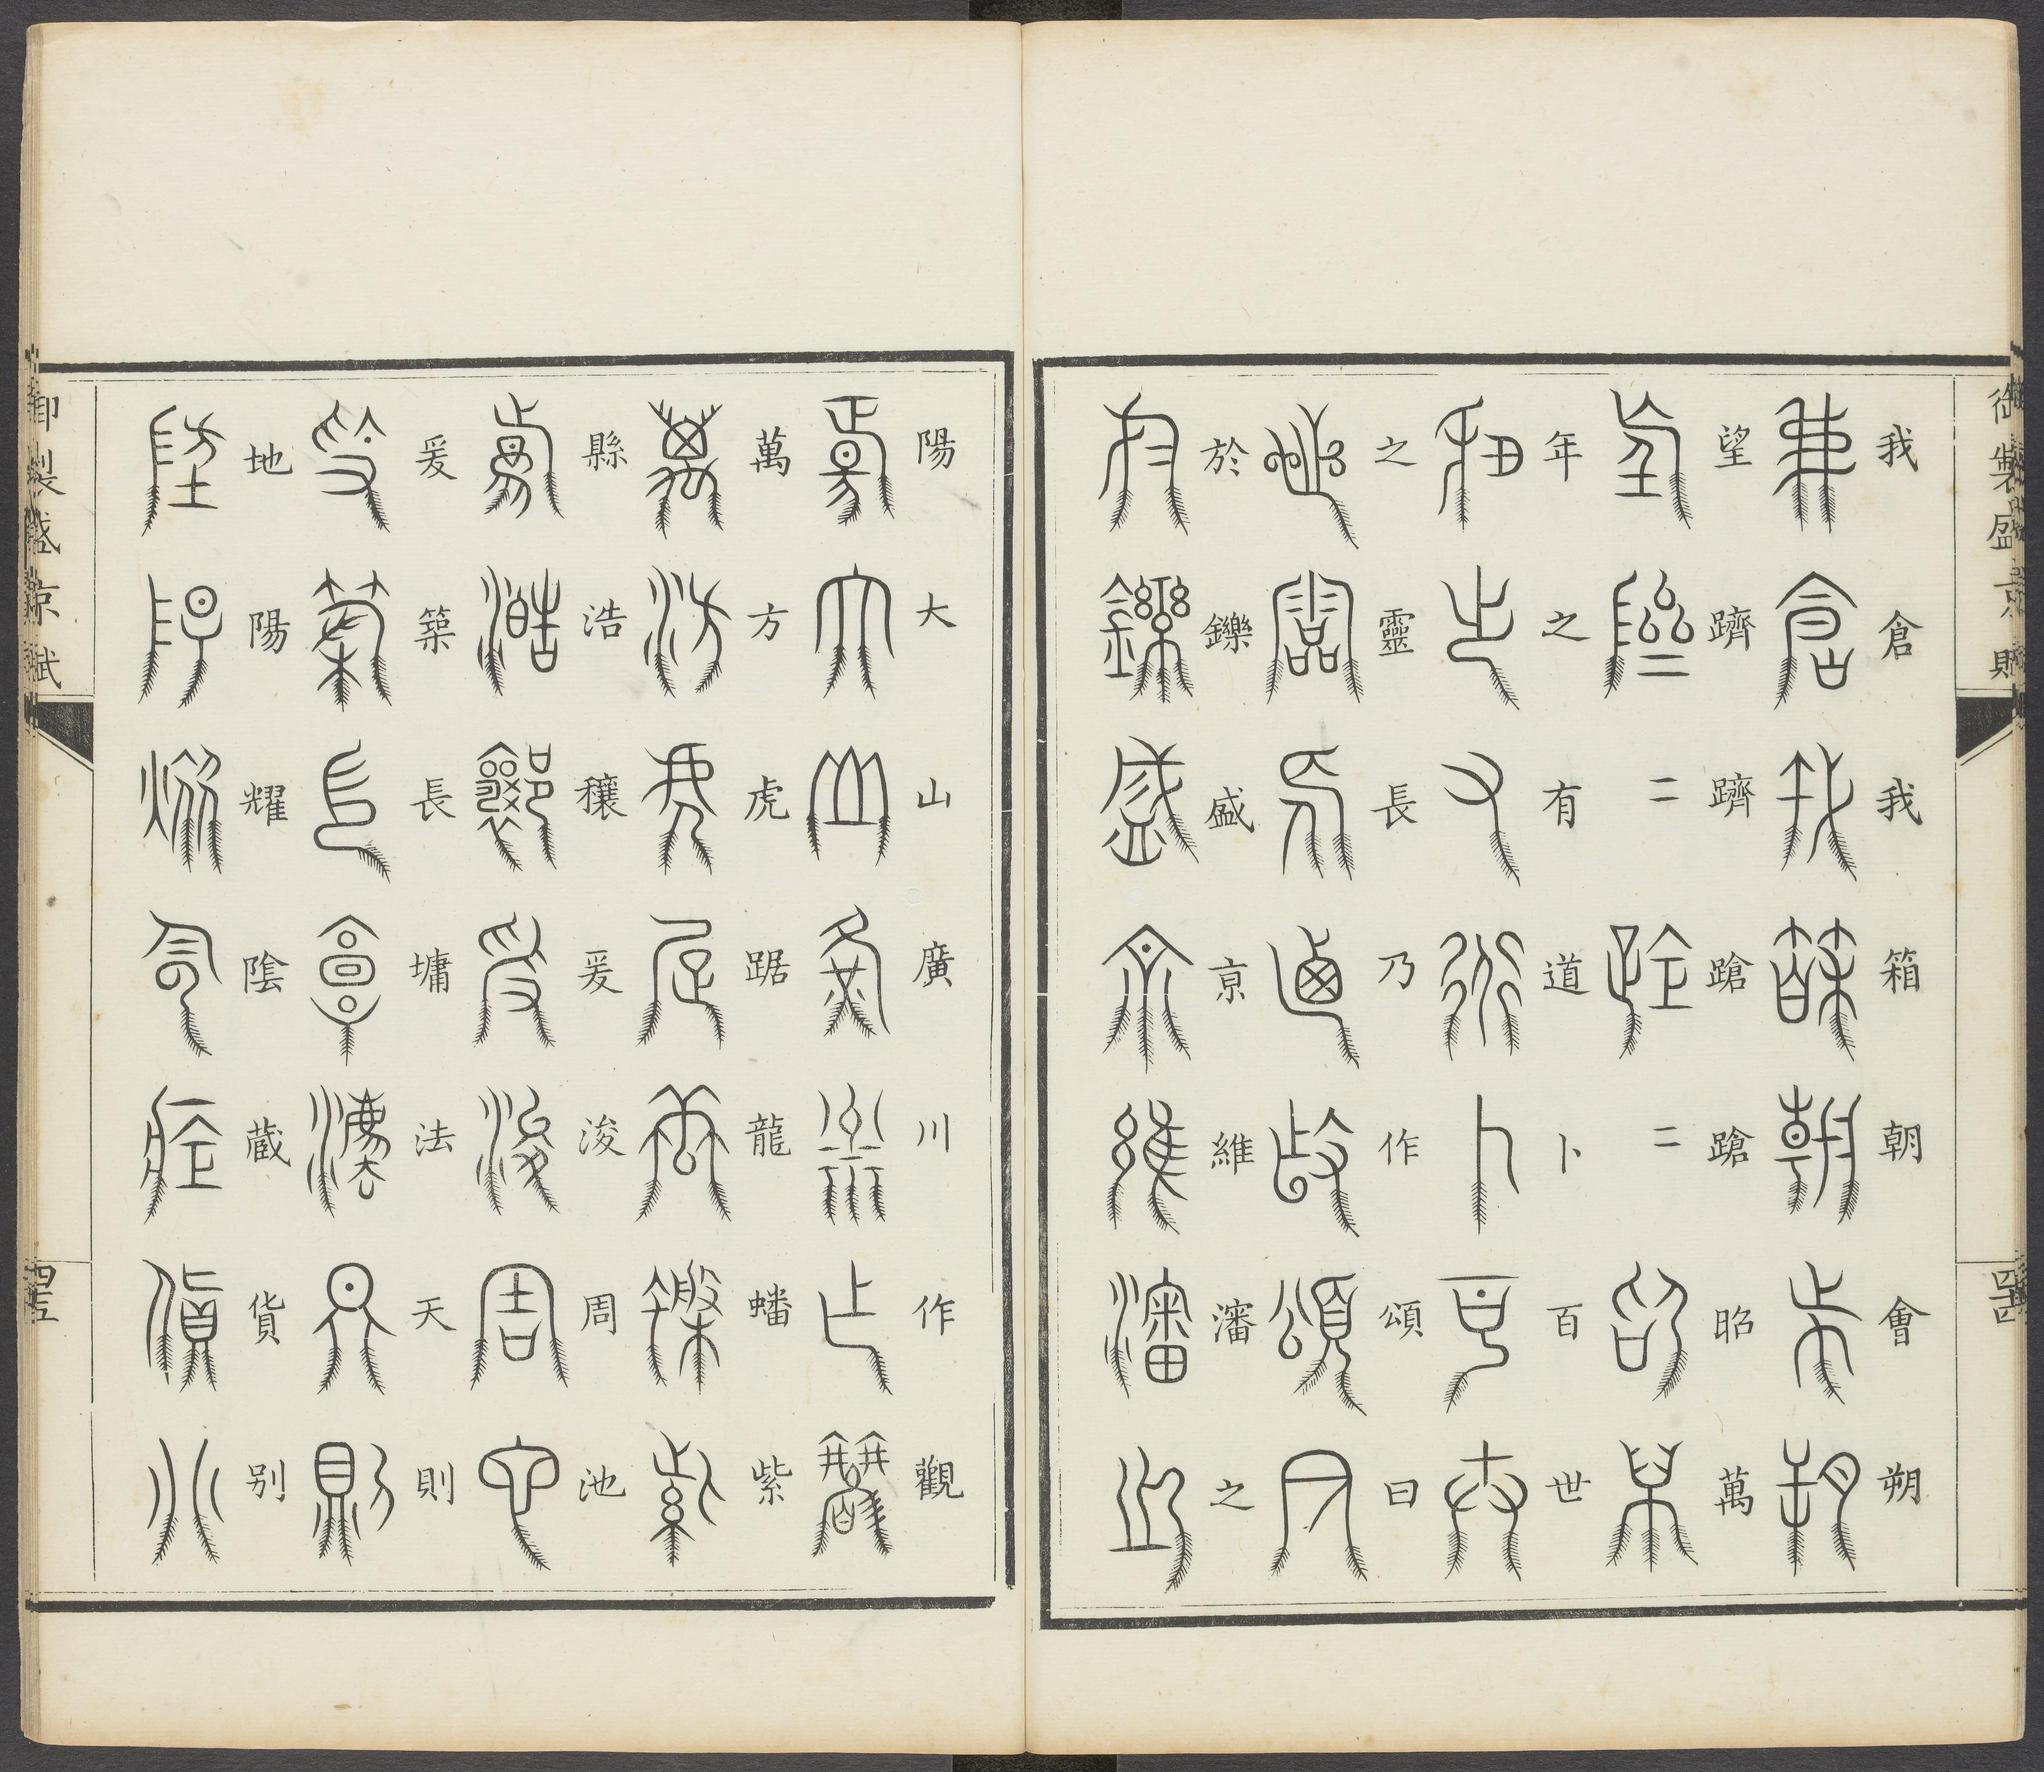 御製盛京賦
我倉我箱朝會朔
望躋躋蹌蹌昭萬
年之有道卜百世
之靈長乃作頌曰
於鑠盛京維瀋之
陽大山廣川作觀
萬方虎踞龍蟠紫
縣浩穰爰浚周池
爰築長墉法天則
地陽耀陰蔵貨别
御製盛京賦